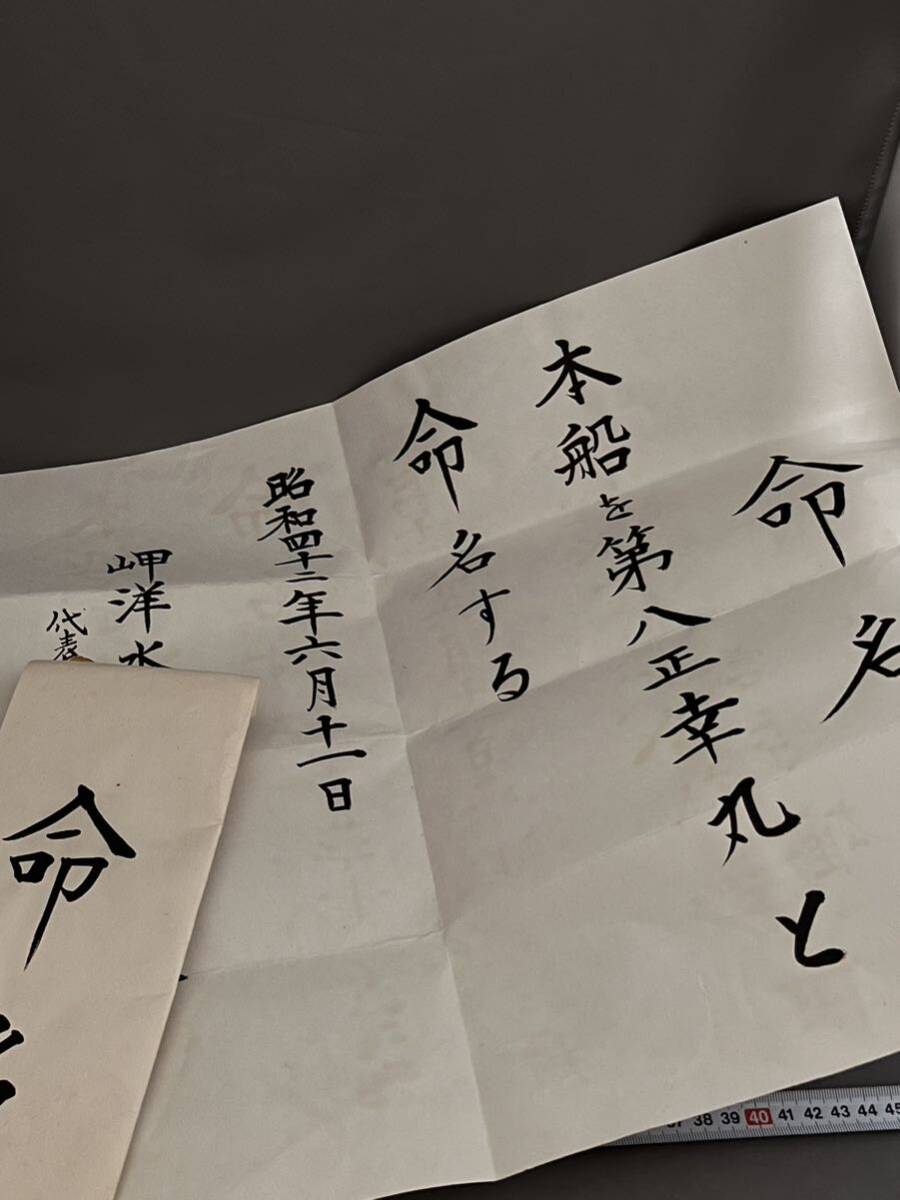 命名
本船を第八正幸丸と
命名する
昭和四十二年六月十一日
岬洋水
代表
命
38 39 40 41 42 43 44 45